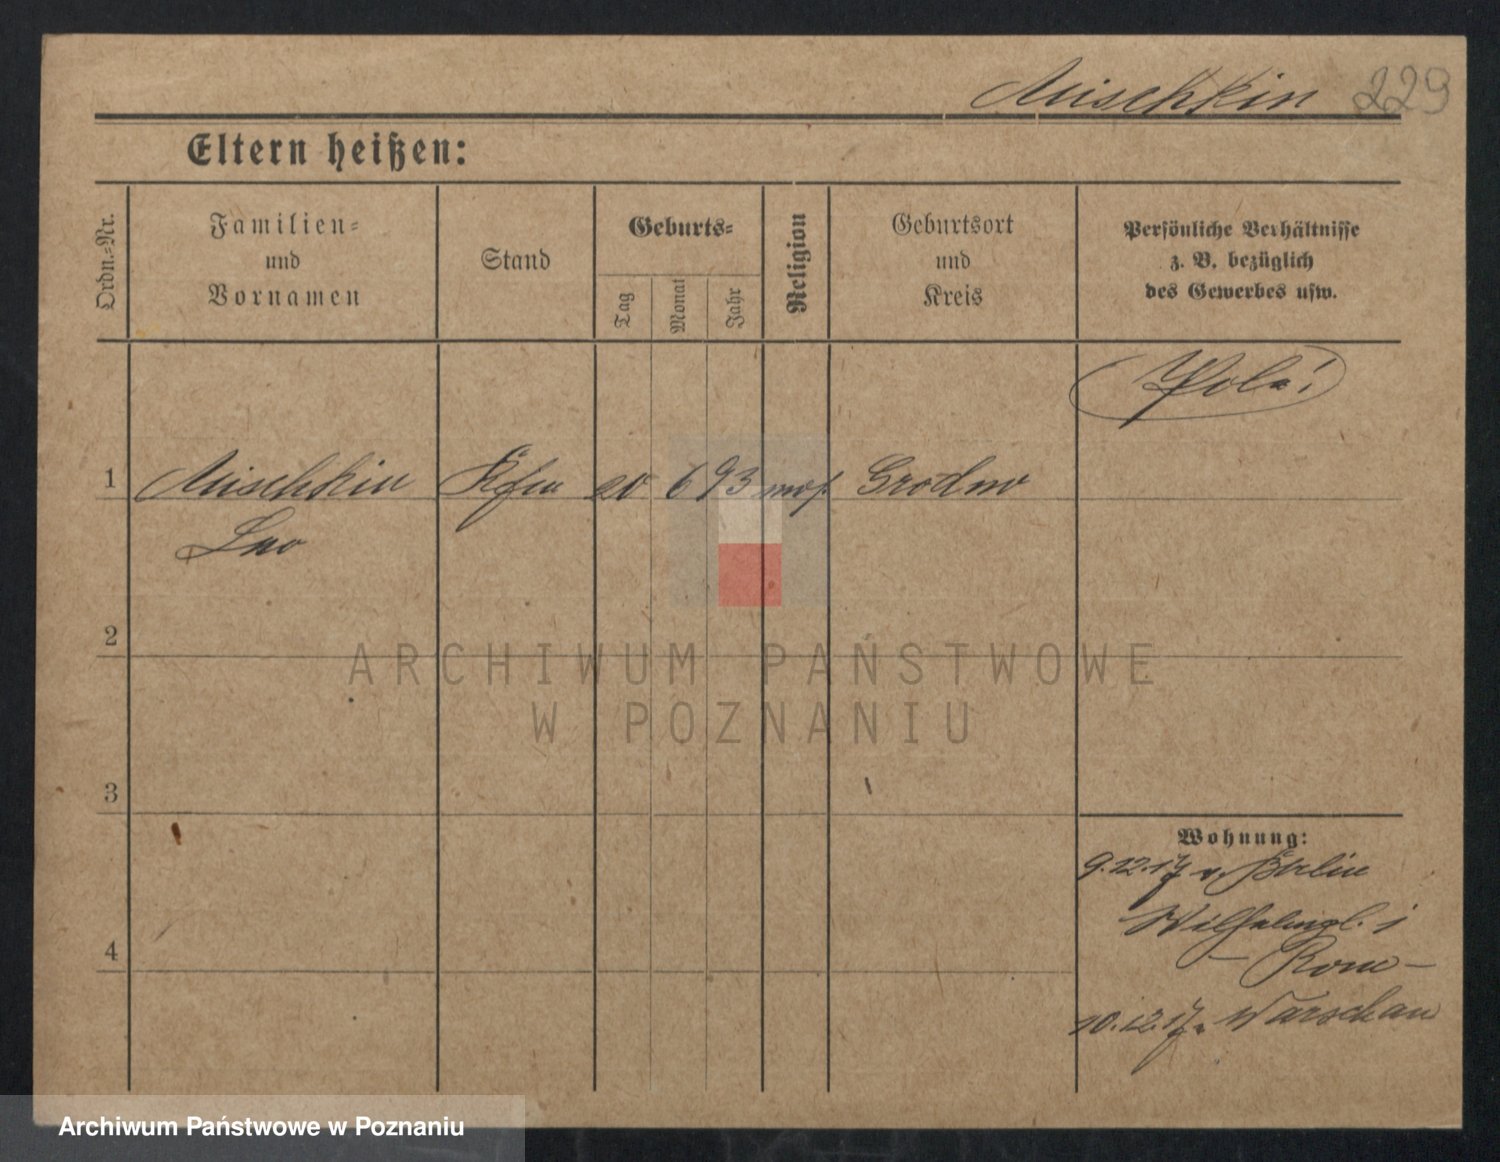 Mischkin 229
Eltern heißen:
Ordn.-Nr.
Familien-
und
Vornamen
Stand
Geburts-
Tag
Monat
Jahr
Religion
Geburtsort
und
Kreis
Persönliche Verhältnisse
z. B. bezüglich
des Gewerbes usw.
(Pole!)
1 Mischkin Kfm 20 6 93 mos. Grodno
Leo
2
3
4
Wohnung:
9.12.17 v. Berlin
Wilhelmpl. 1
– Rome –
10.12.17 n. Warschau
ARCHIWUM PAŃSTWOWE
W POZNANIU
Archiwum Państwowe w Poznaniu